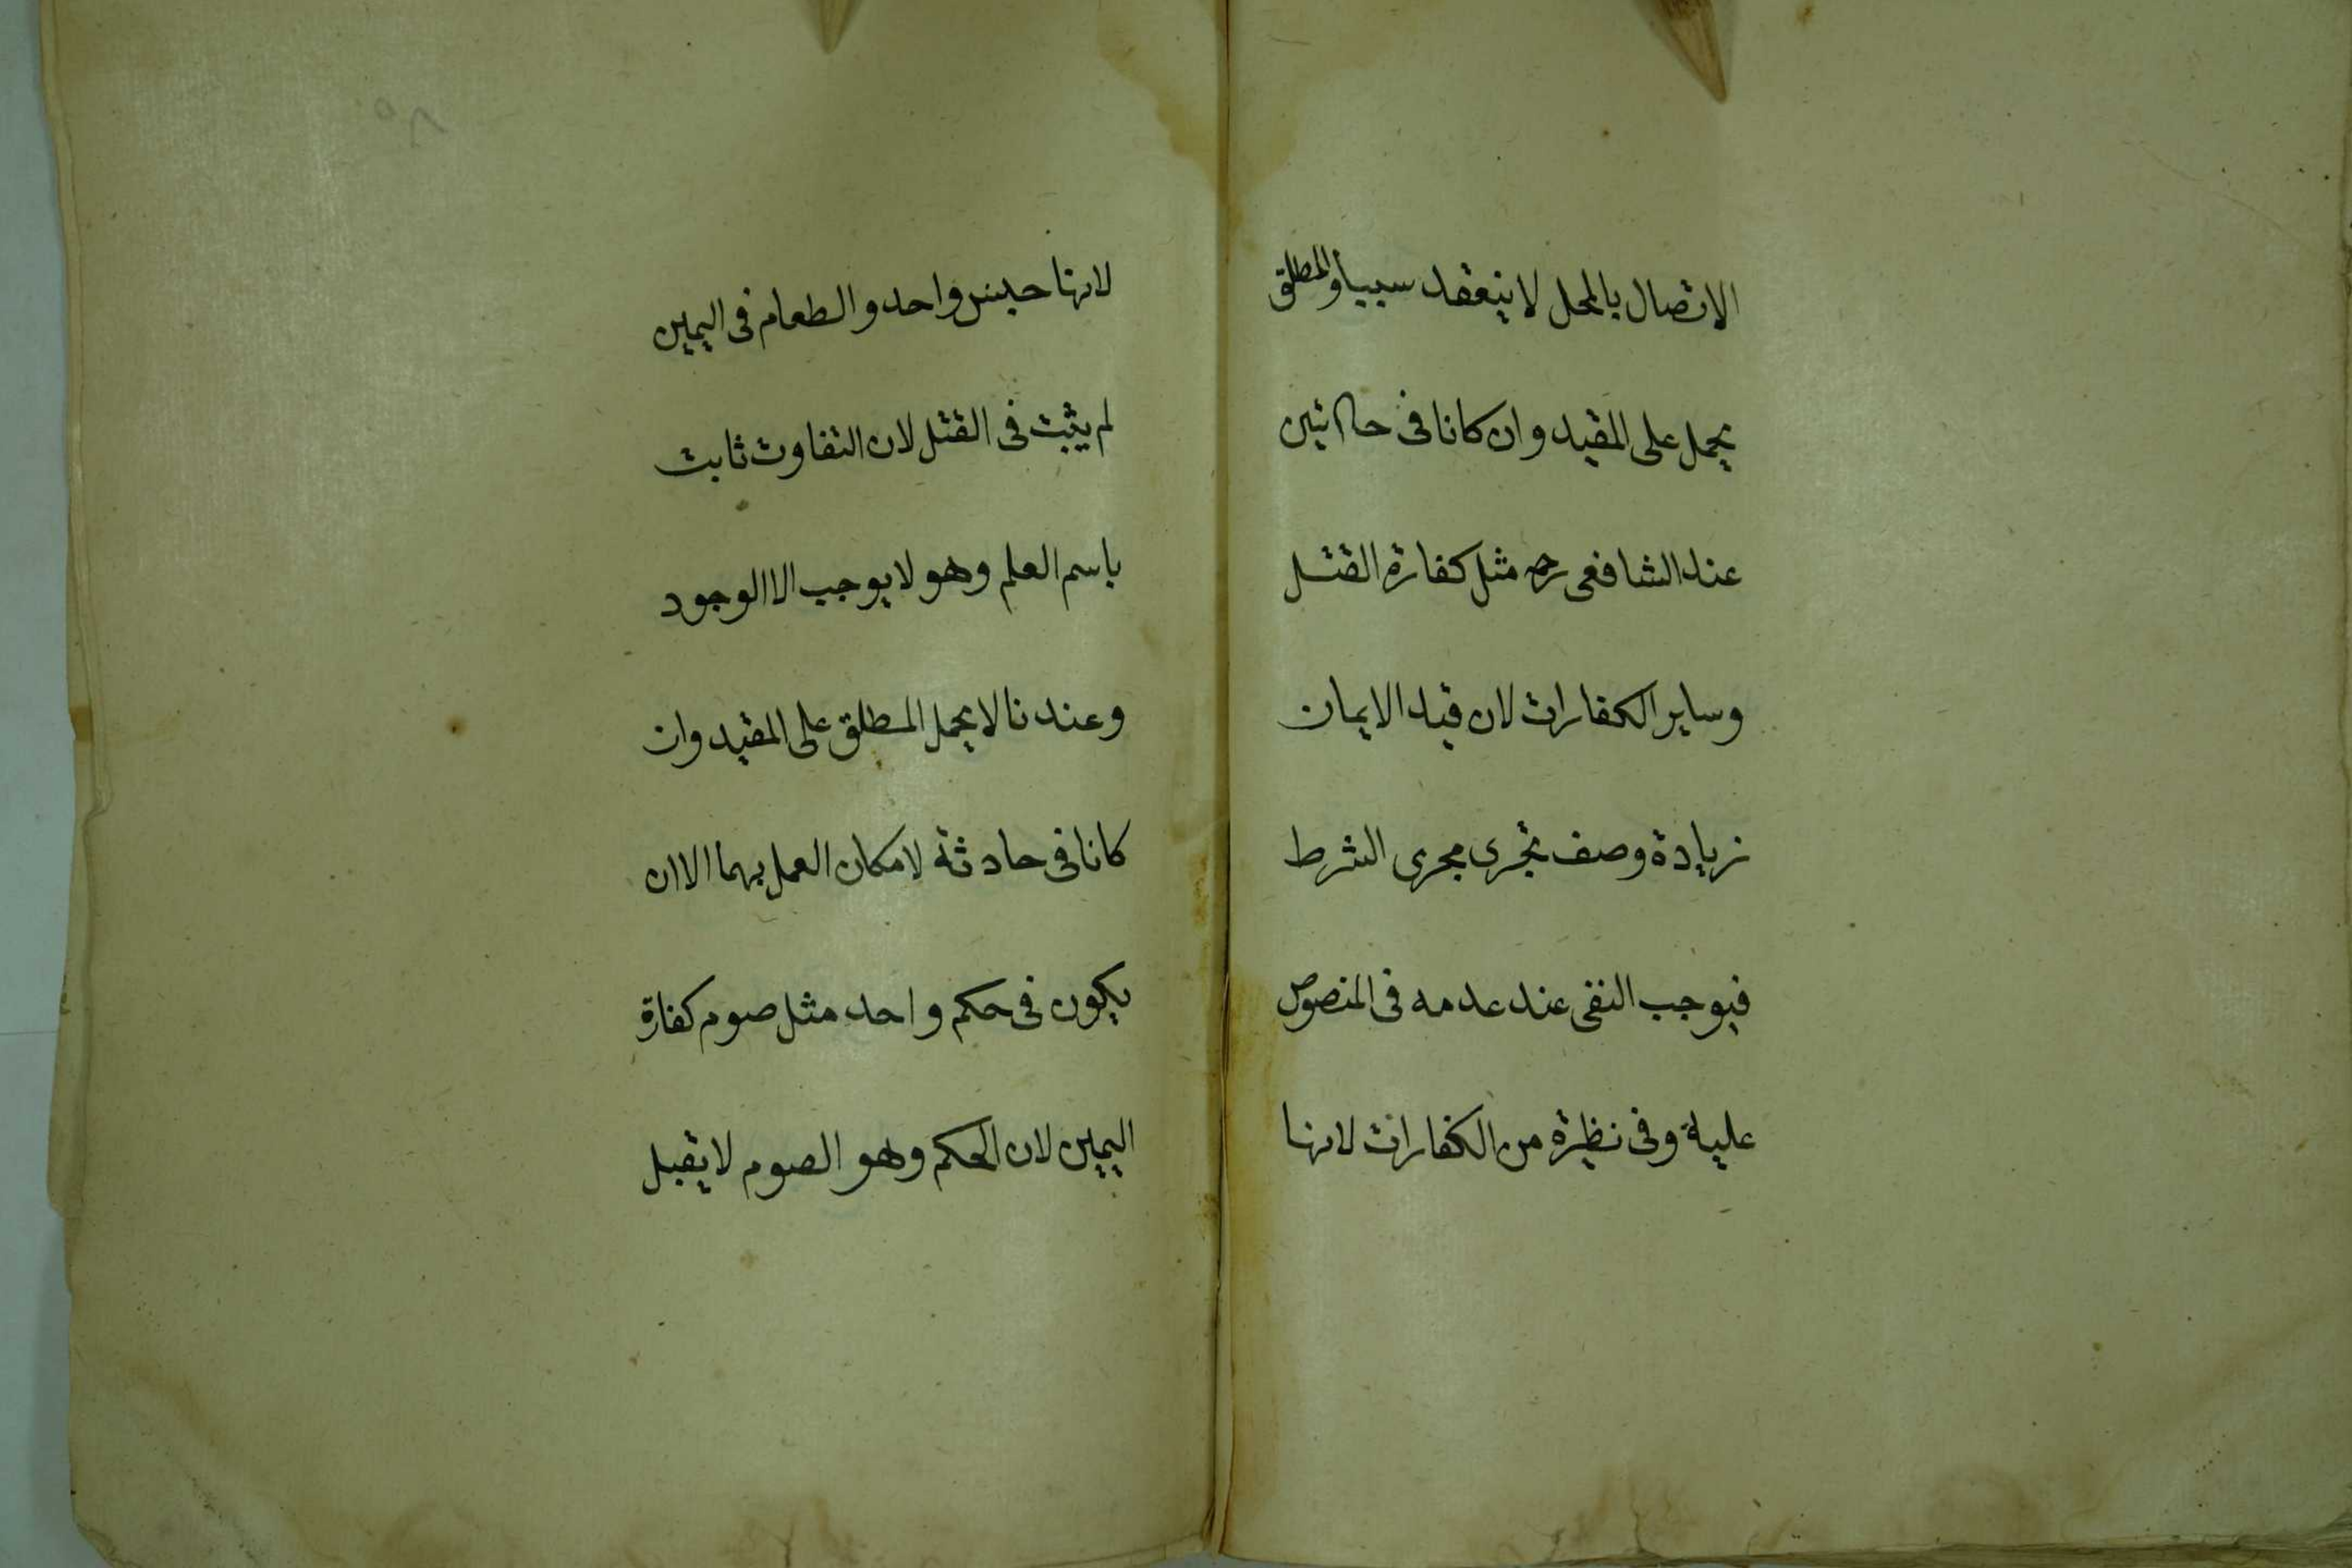 الاتصال بالمحل لا ينعقد سببا والمطلق
يحمل على المقيد وان كانا في حادثتين
عند الشافعي رح مثل كفارة القتل
وساير الكفارات لان قيد الايمان
زيادة وصف تجري مجرى الشرط
فيوجب النفي عند عدمه في المنصوص
عليه وفي نظيره من الكفارات لانها
لانها جنس واحد والطعام في اليمين
لم يثبت في القتل لان التفاوت ثابت
باسم العلم وهو لا يوجب الا الوجود
وعندنا لا يحمل المطلق على المقيد وان
كانا في حادثة لامكان العمل بهما الا ان
يكون في حكم واحد مثل صوم كفارة
اليمين لان الحكم وهو الصوم لا يقبل